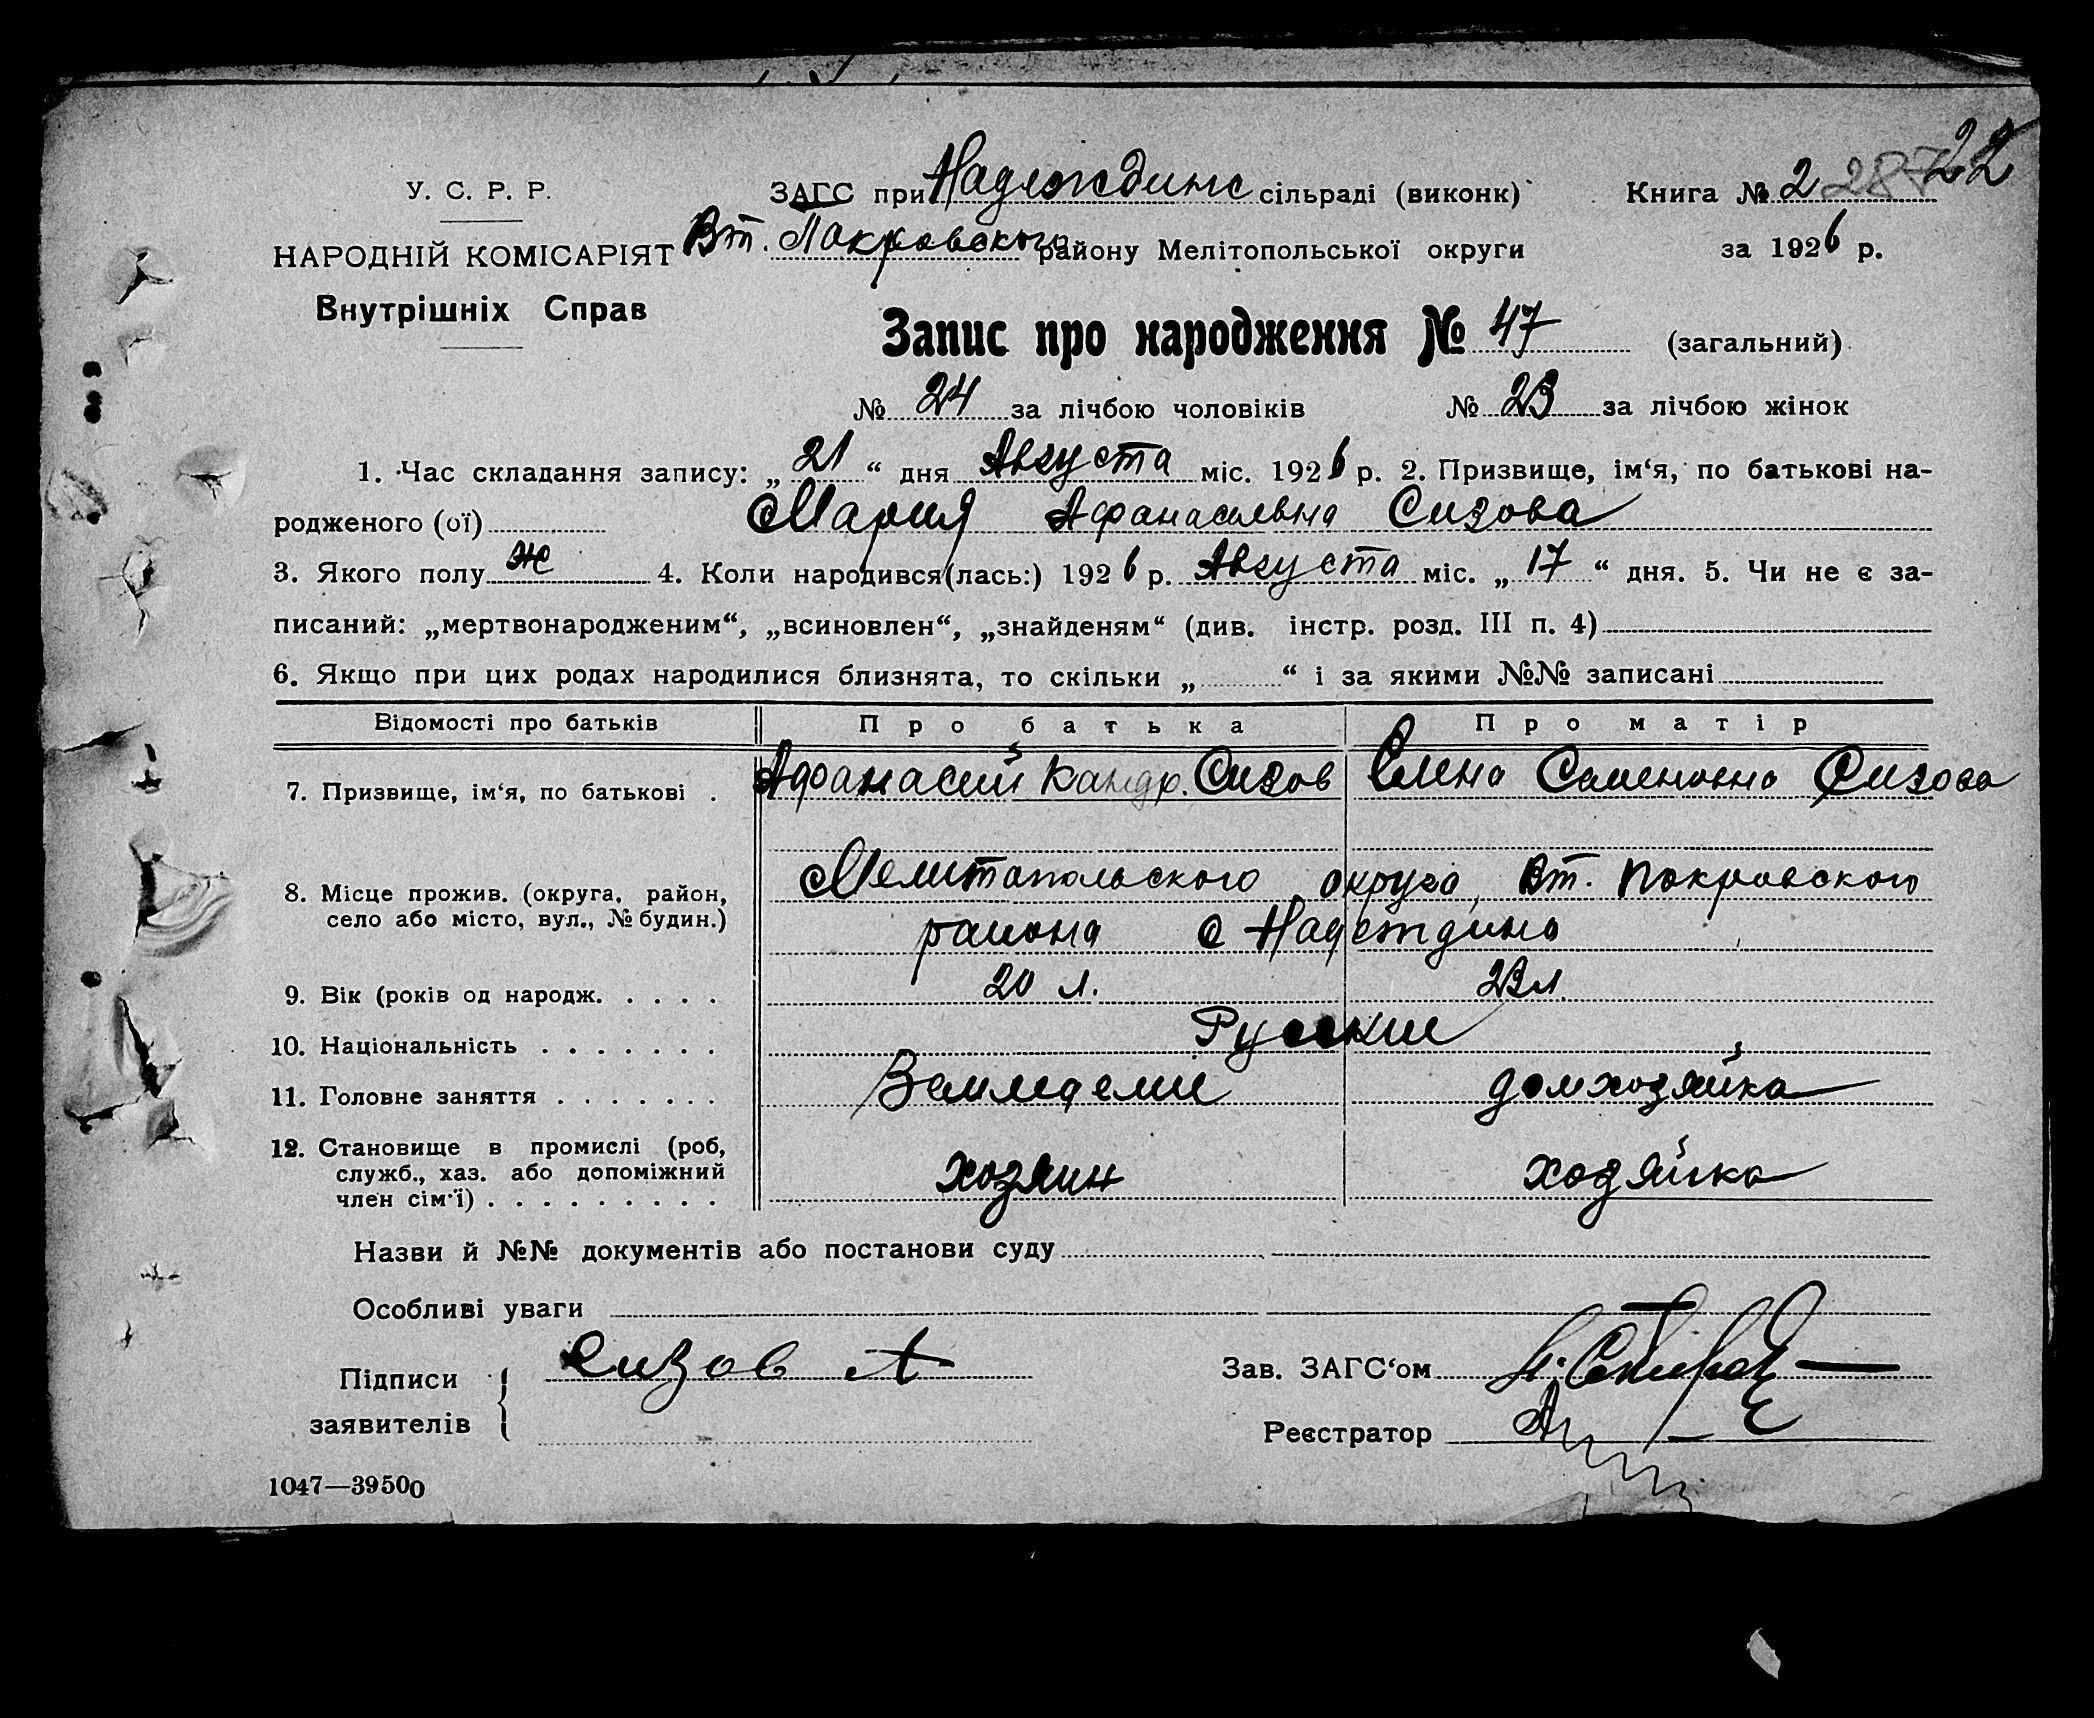 У. С. Р. Р.
НАРОДНІЙ КОМІСАРІЯТ
Внутрішніх Справ
ЗАГС при Надеждинс сільраді (виконк)
Вт. Покровского району Мелітопольської округи
Книга № 2 287 22
за 1926 р.
Запис про народження № 47 (загальний)
№ 24 за лічбою чоловіків № 23 за лічбою жінок
1. Час складання запису: „21“ дня Августа міс. 1926 р. 2. Призвище, ім‘я, по батькові на-
родженого (ої) Мария Афанасьевна Сизова
3. Якого полу ж 4. Коли народився(лась:) 1926 р. Августа міс. „17“ дня. 5. Чи не є за-
писаний: „мертвонародженим“, „всиновлен“, „знайденям“ (див. інстр. розд. III п. 4)
6. Якщо при цих родах народилися близнята, то скільки „ “ і за якими №№ записані
Відомості про батьків Про батька Про матір
7. Призвище, ім‘я, по батькові . Афанасий Кандр. Сизов Елена Саменовна Сизова
8. Місце прожив. (округа, район, Мелитапольского округа, Вт. Покровского
село або місто, вул., № будин.) района с Надеждина
9. Вік (років од народж. . . . . 20 л. 23 л
10. Національність . . . . . . . Русские
11. Головне заняття . . . . . . . Земледелие домхозяйка
12. Становище в промислі (роб,
служб., хаз. або допоміжний хозяин хозяйка
член сім‘ї) . . . . . . . . .
Назви й №№ документів або постанови суду
Особливі уваги
Підписи Сизов А
заявителів
Зав. ЗАГС‘ом
Реєстратор
1047—39500